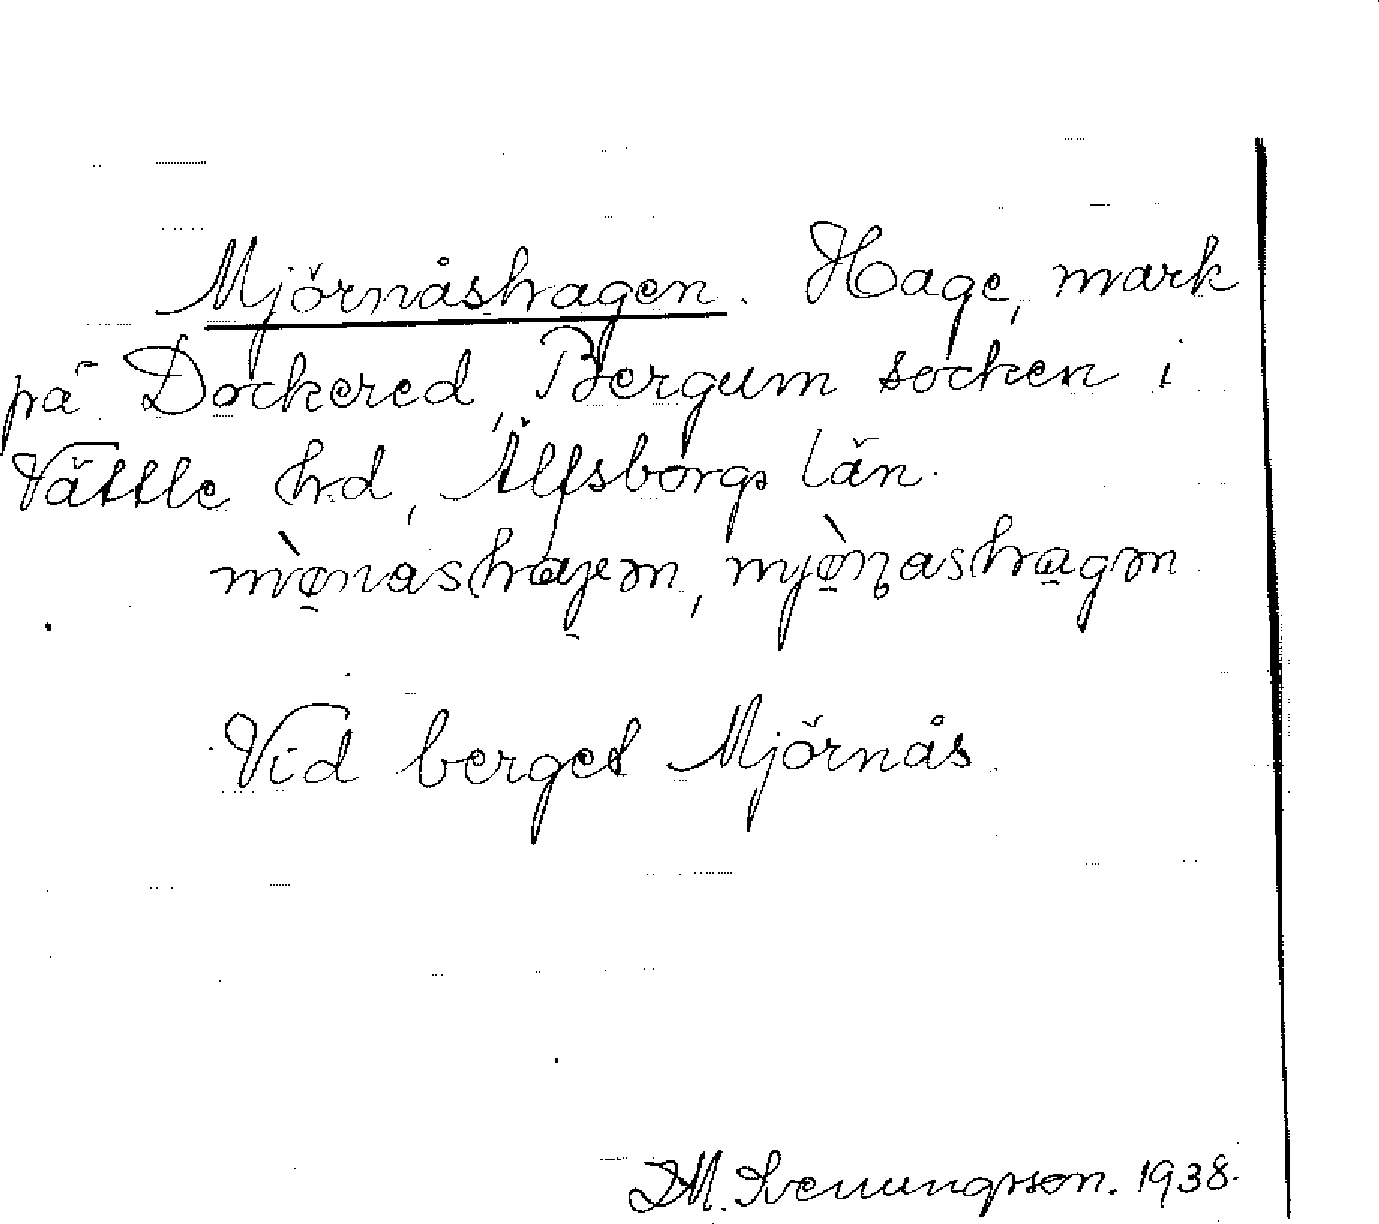 Mjörnåshagen. Hage, mark
på Dockered, Bergum socken i
Vättle hd, Älfsborgs län.
mø̀nashaɡen, mjø̀ɳashagən
Vid berget Mjörnås.
D.M. Svenungsson. 1938.